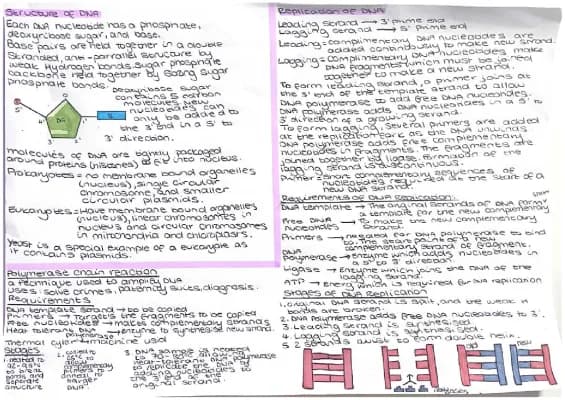 Structure of DNA
Each DNA nucleotide has a phosphate,
deoxyribose sugar, and base.
Base pairs are held together in a double
stranded, anti-parallel structure by
weak Hydrogen bonds. Sugar phosphate
backbone held together by strong sugar
phosphate bonds.
Deoxyribose sugar
contains 5 carbon
molecules. New
nucleotides can
only be added to
the 3' end in a 5' to
3' direction.
molecules of DNA are tightly packaged
around proteins (histones) to fit into nucleus.
Prokaryotes = no membrane bound organelles
(nucleus), single circular
chromosome, and smaller
circular plasmids.
Eukaryotes = Have membrane bound organelles
(nucleus), linear chromosomes in
nucleus and circular chromosomes
in mitochondria and chloroplasts.
Yeast is a special example of a eukaryote as
it contains plasmids.
Polymerase chain reaction
a technique used to amplify DNA
uses: solve crimes, paternity suits, diagnosis.
Requirements
DNA template strand → to be copied
Primers → Targets the fragments to be copied
Free nucleotides → makes complementary strands
Heat tolerant DNA polymerase → enzyme to synthesise new strand
Thermal cycler → machine used
Stages
1. Heated to
92-98°C
to break
bonds and
separate
structure
2. cooled to
to allow
complementary
primers to
anneal to
target
DNA.
3. DNA sample is heated
to allow
heat-tolerant DNA polymerase
to replicate the DNA by
adding nucleotides to
the 3' end of the
original strand.
Replication of DNA
Leading strand → 3' prime end
Lagging strand → 5' prime end
Leading: complimentary DNA nucleotides are
added continuously to make new strand.
Lagging: Complimentary DNA nucleotides make
DNA fragments which must be joined
together to make a new strand.
To form leading strand, a primer joins at
the 3' end of the template strand to allow
DNA polymerase to add free DNA nucleotides.
DNA polymerase adds DNA nucleotides in a 5' to
3' direction of a growing strand.
To form lagging, several primers are added
at the replication fork as the DNA unwinds
DNA polymerase adds free complementary
nucleotides in fragments. The fragments are
joined together by ligase. Formation of the
lagging strand is discontinuous.
Primer = short complementary sequences of
nucleotides required at the start of a
new DNA strand.
Requirements of DNA Replication
DNA template → The original strands of DNA form
a template for the new complementary
Free DNA nucleotides → to make the new complementary
strand.
Primers → needed for DNA polymerase to bind
to. The start point of a new
complementary strand or fragment.
DNA Polymerase → enzyme which adds nucleotides in
a 5' to 3' direction.
Ligase → Enzyme which joins the DNA of the
lagging strand
ATP → energy which is required for DNA replication
Stages of DNA Replication
1. original DNA strand is split, and the weak H
bonds are broken.
2. DNA Polymerase adds free DNA nucleotides to 3'.
3. Leading strand is synthesised
4. Lagging strand is synthesised.